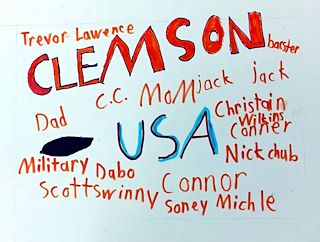 Trevor Lawence
CLEMSON
barster
C.C. MoM jack jack
Dad
USA
Christain
Wilkins
Conner
Nick chub
Military Dabo
Scottswinny Connor
Soney Michle